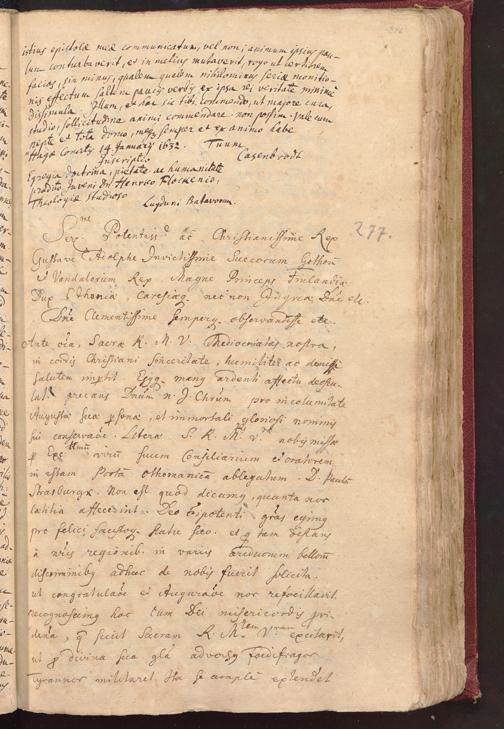 istius epistolæ meæ communicatum, vel non; animum ipsius pau-
lum conturbaverit, et in melius mutaverit, rogo ut certiorem
facias, sin minus, qualem qualem nihilominus seriæ monitio-
nis effectum saltem paucis verbis ex ipsa rei veritate minime
dissimula. Illum, et hoc sic tibi commendo, ut majore cura,
studio, sollicitudine animi commendare non possim. Vale cum
nepte et tota domo, meq semper et ex animo habe
Hagæ Comitis 14 January 1632. Tuum
Inscriptio Casenbrodt
Egregia doctrina, pietate ac humanitate
prædito Juveni Dn Henrico Flockenio,
Theologiæ studioso
Lugduni Batavorum.
277.
Ser.me Potentiss.e ac Christianissime Rex
Gustave Adolphe Invictissime Suecorum Gothorū
& Vandalorum Rex Magne Princeps Finlandiæ
Dux Esthoniæ, Careliæq nec non Ingriæ Dne etc.
Dne Clementissime semperq observandisse etc.
Ante oīa, Sacræ R. M. V. Mediocritas nostra,
in cordis Christiani sinceritate, humiliter ac demisse
salutem imptit Eyq. many ardenti affectu
precans Dnum n. J. Chrum pro incolumitate
Augustæ suæ psonæ, et immortali gloriosi nominis
sui conservaoe. Literæ S. R. M. V. nobis missæ
p virum suum Consiliarium & oratorem
in istam Portā Othomanicā ablegatum D. Paulū
Strasburgæ. Non est quod dicamq, quanta nos
lætitia affecerint. Deo Oipotenti grās egimq
pro felici faustoq statu suo. et q tam distans
à nris regionib. in varijs arduorum bellorū
discriminibq adhuc de nobis fuerit solicita.
ut congratulaōe & Auguraōe nos refocillavit.
recognoscimq hoc cum Dei misericordis pri-
dena, q sicut Sacram R. M. V. excitavit,
ut p divina sua glā adversq foedifragos
tyrannos militaret Ita se amplè extendet